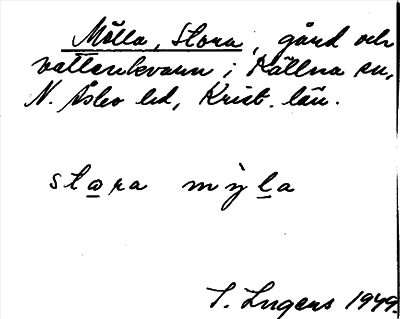 Mölla, Stora, gård och
vattenkvarn i Källna sn,
N. Åsbo hd, Krist. län.
stora mỳla
S. Ingers 1949.